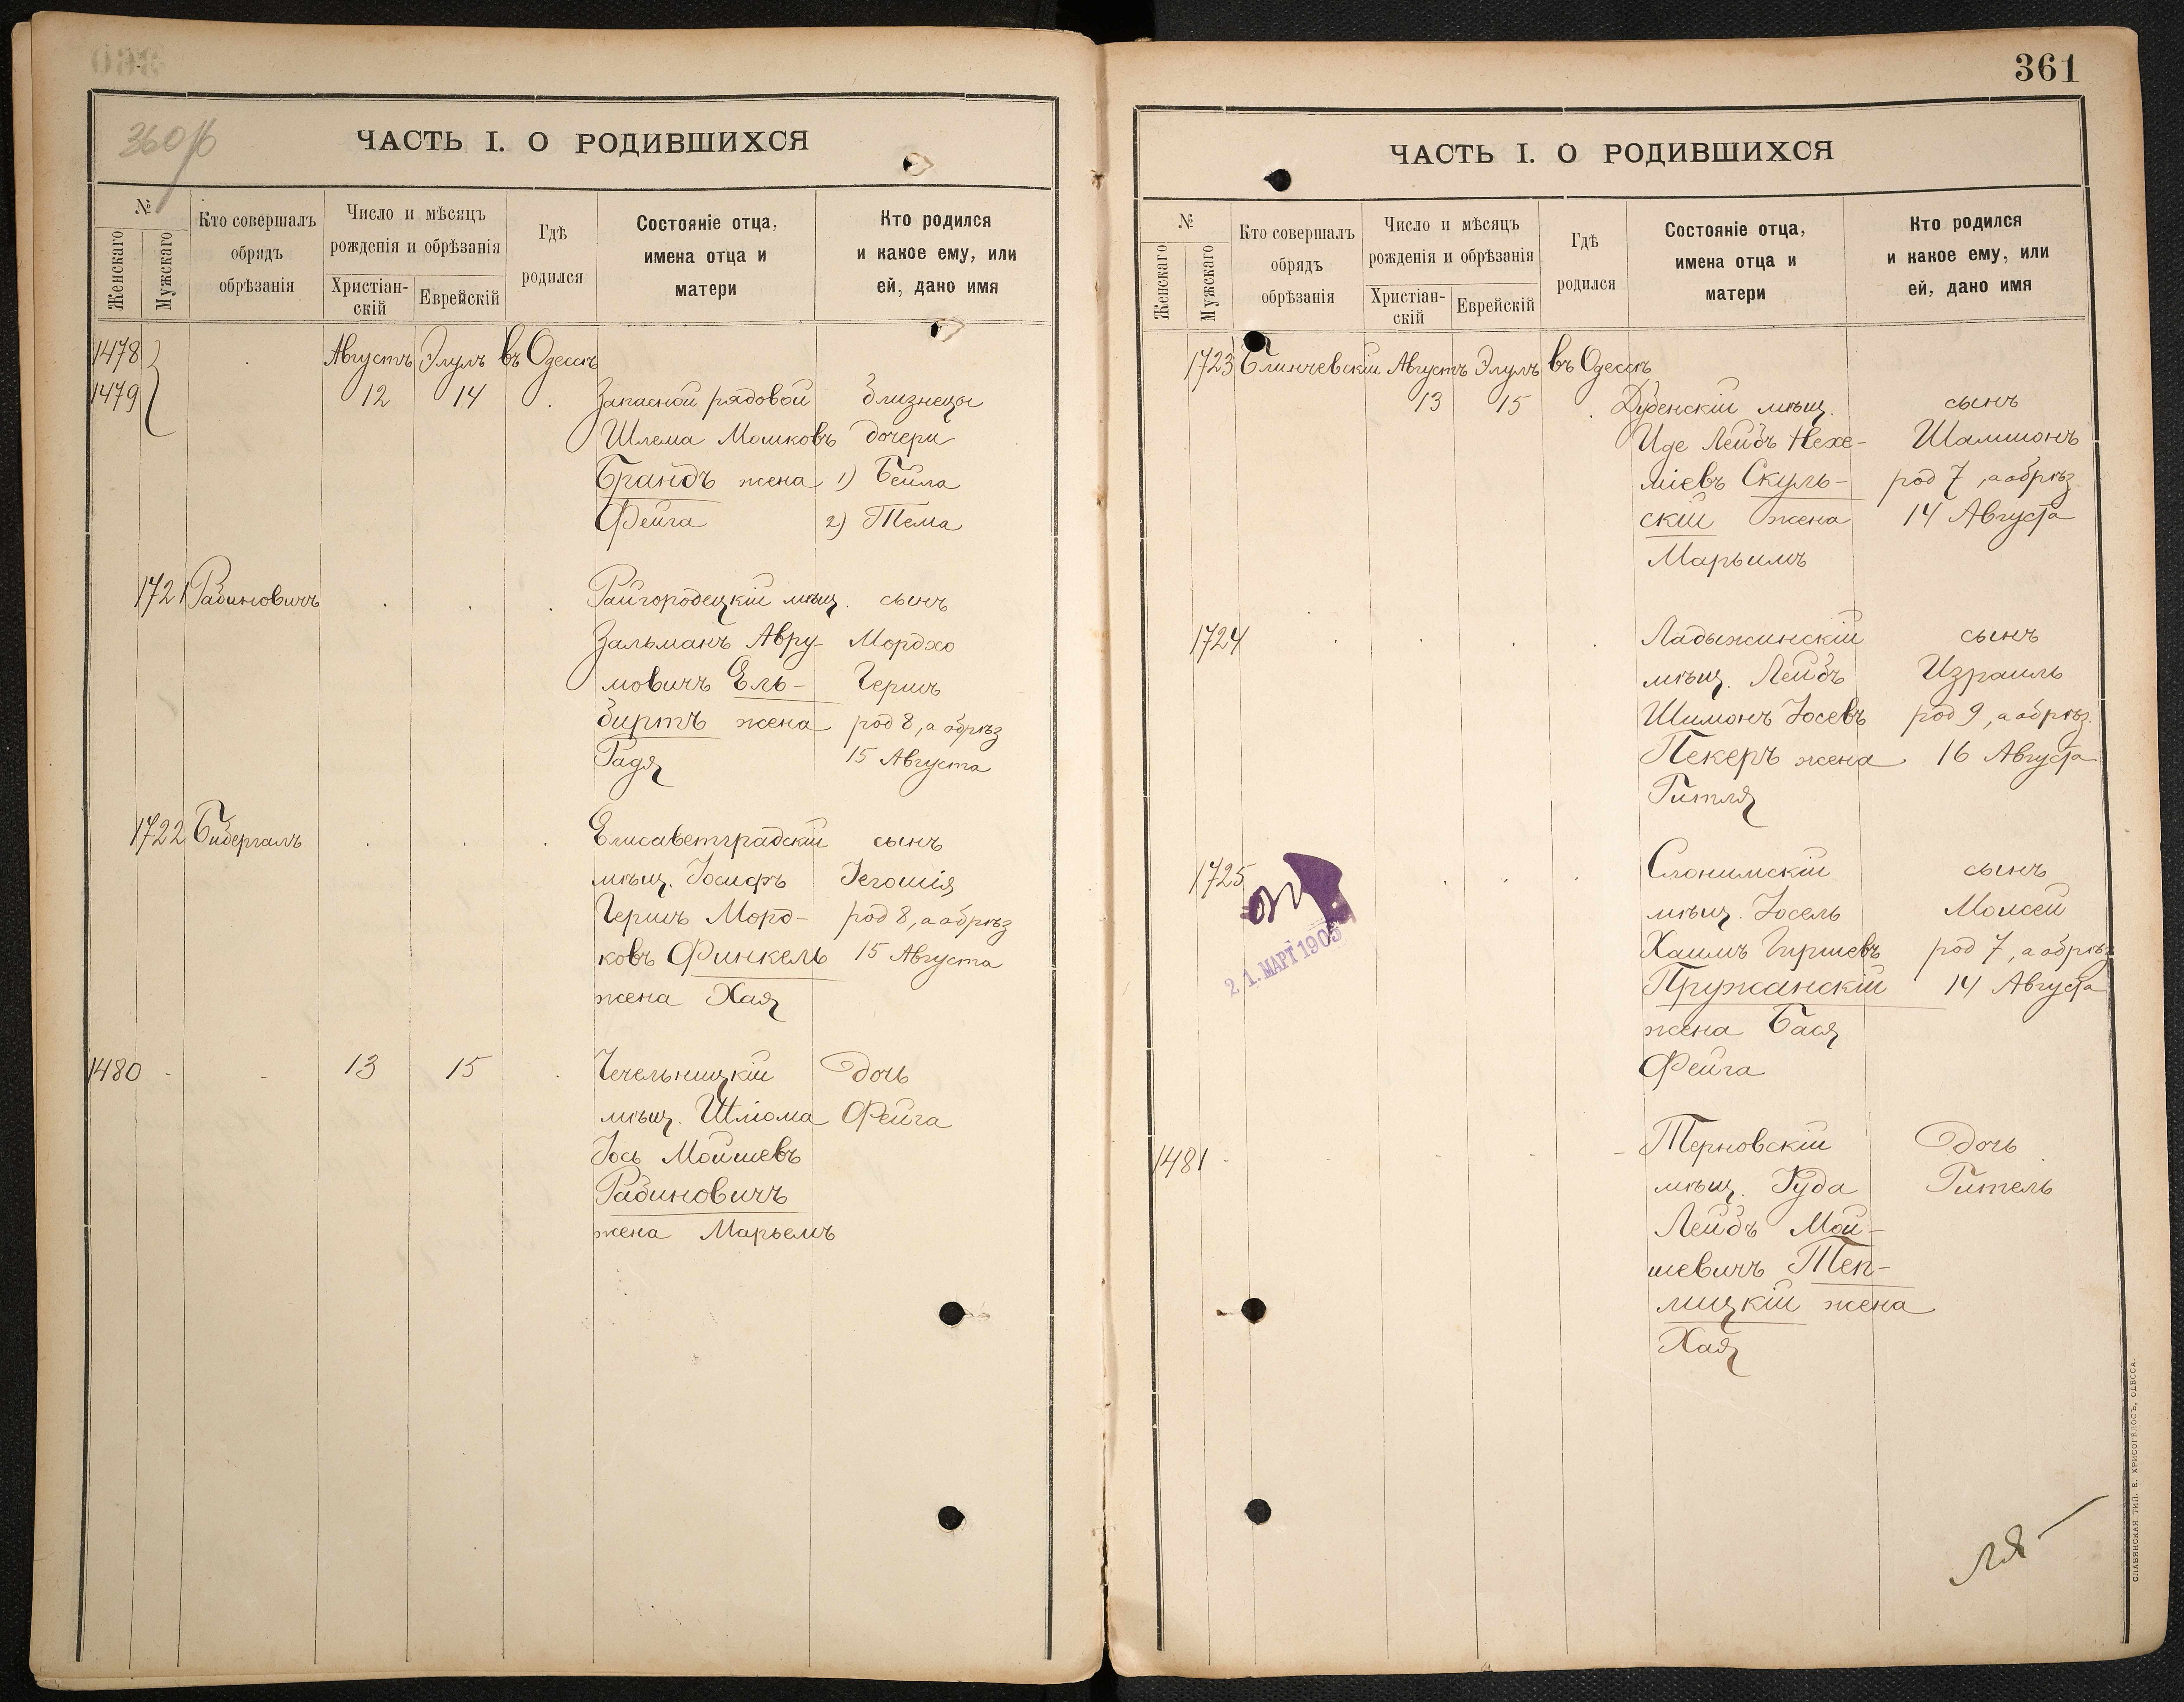 360 об
ЧАСТЬ I. О РОДИВШИХСЯ
№
Женскаго
Мужскаго
Кто совершалъ
обрядъ
обрѣзанія
Число и мѣсяцъ
рожденія и обрѣзанія
Христіан-
скій
Еврейскій
Гдѣ
родился
Состояніе отца,
имена отца и
матери
Кто родился
и какое ему, или
ей, дано имя
1478 Августъ Элулъ въ Одессѣ
1479 12 14 Запасной рядовой близнецы
Шлема Мошковъ дочери
Брандъ жена 1) Бейла
Фейга 2) Тема
1721 Рабиновичъ Райгородецкій мѣщ. сынъ
Зальманъ Авру- Мордхо
мовичъ Ель- Гершъ
биртъ жена род 8, а обрѣз
Радя 15 Августа
1722 Бибергалъ Елисаветградскій сынъ
мѣщ. Іосифъ Іегошія
Гершъ Морд- род 8, а обрѣз
ковъ Финкель 15 Августа
жена Хая
1480 13 15 Чечельницкій дочь
мѣщ. Шліома Фейга
Іось Мойшевъ
Рабиновичъ
жена Марьемъ
361
ЧАСТЬ I. О РОДИВШИХСЯ
№
Женскаго
Мужскаго
Кто совершалъ
обрядъ
обрѣзанія
Число и мѣсяцъ
рожденія и обрѣзанія
Христіан-
скій
Еврейскій
Гдѣ
родился
Состояніе отца,
имена отца и
матери
Кто родился
и какое ему, или
ей, дано имя
1723 Блинчевскій Августъ Элулъ въ Одессѣ
13 15 Дубенскій мѣщ. сынъ
Иде Лейбъ Нехе- Шамшонъ
міевъ Скуль- род 7, а обрѣз
скій жена 14 Августа
Марьимъ
1724 Ладыжинскій сынъ
мѣщ. Лейбъ Израиль
Шимонъ Іосевъ род 9, а обрѣз.
Пекеръ жена 16 Августа
Гитля
1725 Слонимскій сынъ
мѣщ. Іосель Моисей
Хаимъ Гиршевъ род 7, а обрѣз
21. МАРТ 1905
Пружанскій 14 Августа
жена Бася
Фейга
1481 Терновскій дочь
мѣщ. Іуда Гитель
Лейбъ Мой-
шевичъ Теп-
лицкій жена
Хая
СЛАВЯНСКАЯ ТИП. Е. ХРИСОГЕЛОСЪ, ОДЕССА.